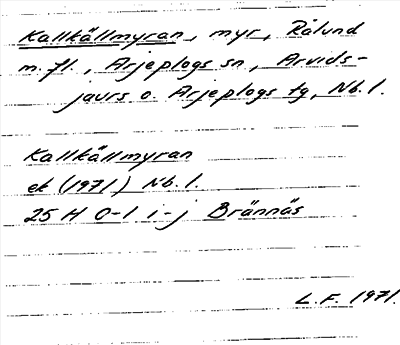 Kallkällmyran, myr, Rålund
m.fl., Arjeplogs sn, Arvids-
jaurs o. Arjeplogs tg, Nb.l.
Kallkällmyran
ek (1971) Nb.l.
25 H 0-1 i-j Brännäs
L.F. 1971.